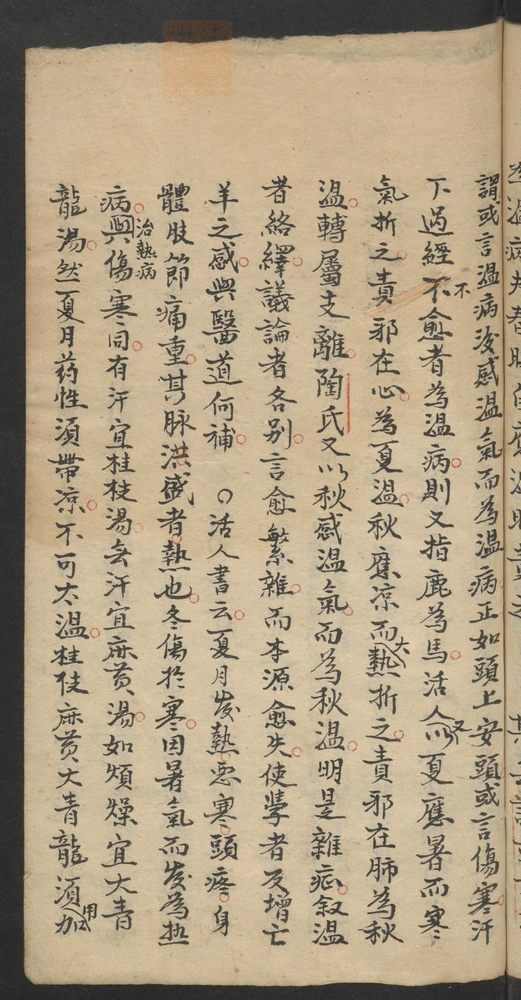 謂或言温病後感温氣而為温病正如頭上安頭或言傷寒汗
下過經不愈者為温病則又指鹿為馬活人又以夏應暑而寒
氣折之責邪在心為夏温秋應涼而大熱折之責邪在肺為秋
温轉屬支離陶氏又以秋感温氣而為秋温明是雜症叙温
者絡繹議論者各别言愈繁雜而本源愈失使學者反增亡
羊之感與醫道何補○活人書云夏月發熱惡寒頭疼身
體肢節痛重其脉洪盛者熱也冬傷於寒因暑氣而發為热
病治熱病與傷寒同有汗宜桂枝湯無汗宜麻黄湯如煩燥宜大青
龍湯然夏月药性須帶凉不可太温桂枝麻黄大青龍須用加